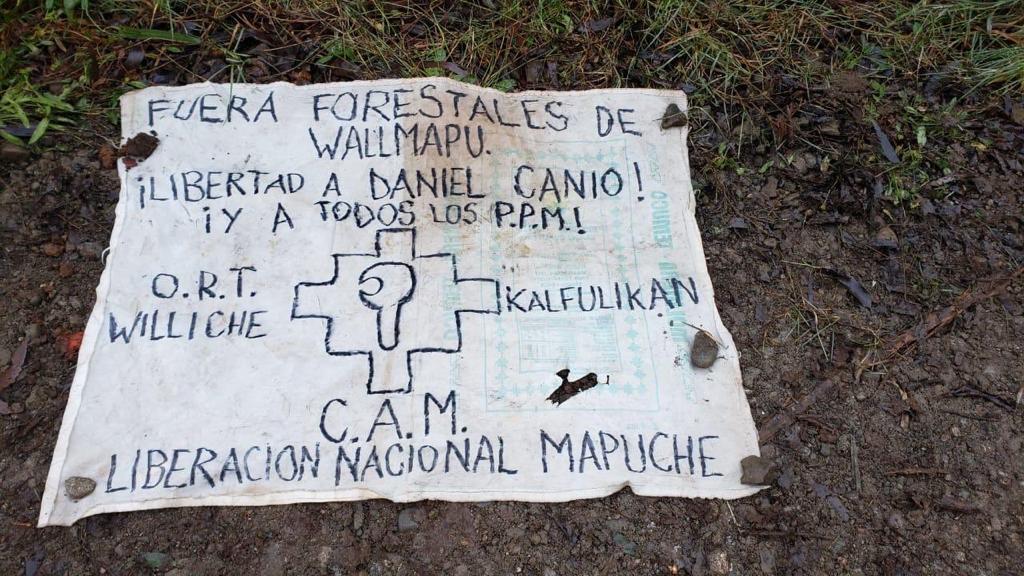 FUERA FORESTALES DE
WALLMAPU.
¡LIBERTAD A DANIEL CANIO!
¡Y A TODOS LOS P.P.M.!
O.R.T.
WILLICHE
KALFULIKAN
C.A.M.
LIBERACION NACIONAL MAPUCHE